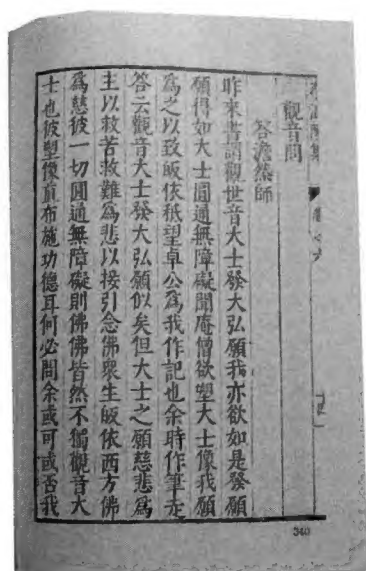 卷之六
觀音問
答澹然師
昨來書謂觀世音大士發大弘願我亦欲如是發願
願得如大士圓通無障礙聞庵僧欲塑大士像我願
為之以致皈依秪望卓公為我作記也余時作筆走
答云觀音大士發大弘願似矣但大士之願慈悲為
主以救苦救難為悲以接引念佛衆生皈依西方佛
為慈彼一切圓通無障礙則佛佛皆然不獨觀音大
士也彼塑像直布施功德耳何必問余或可或否我
340